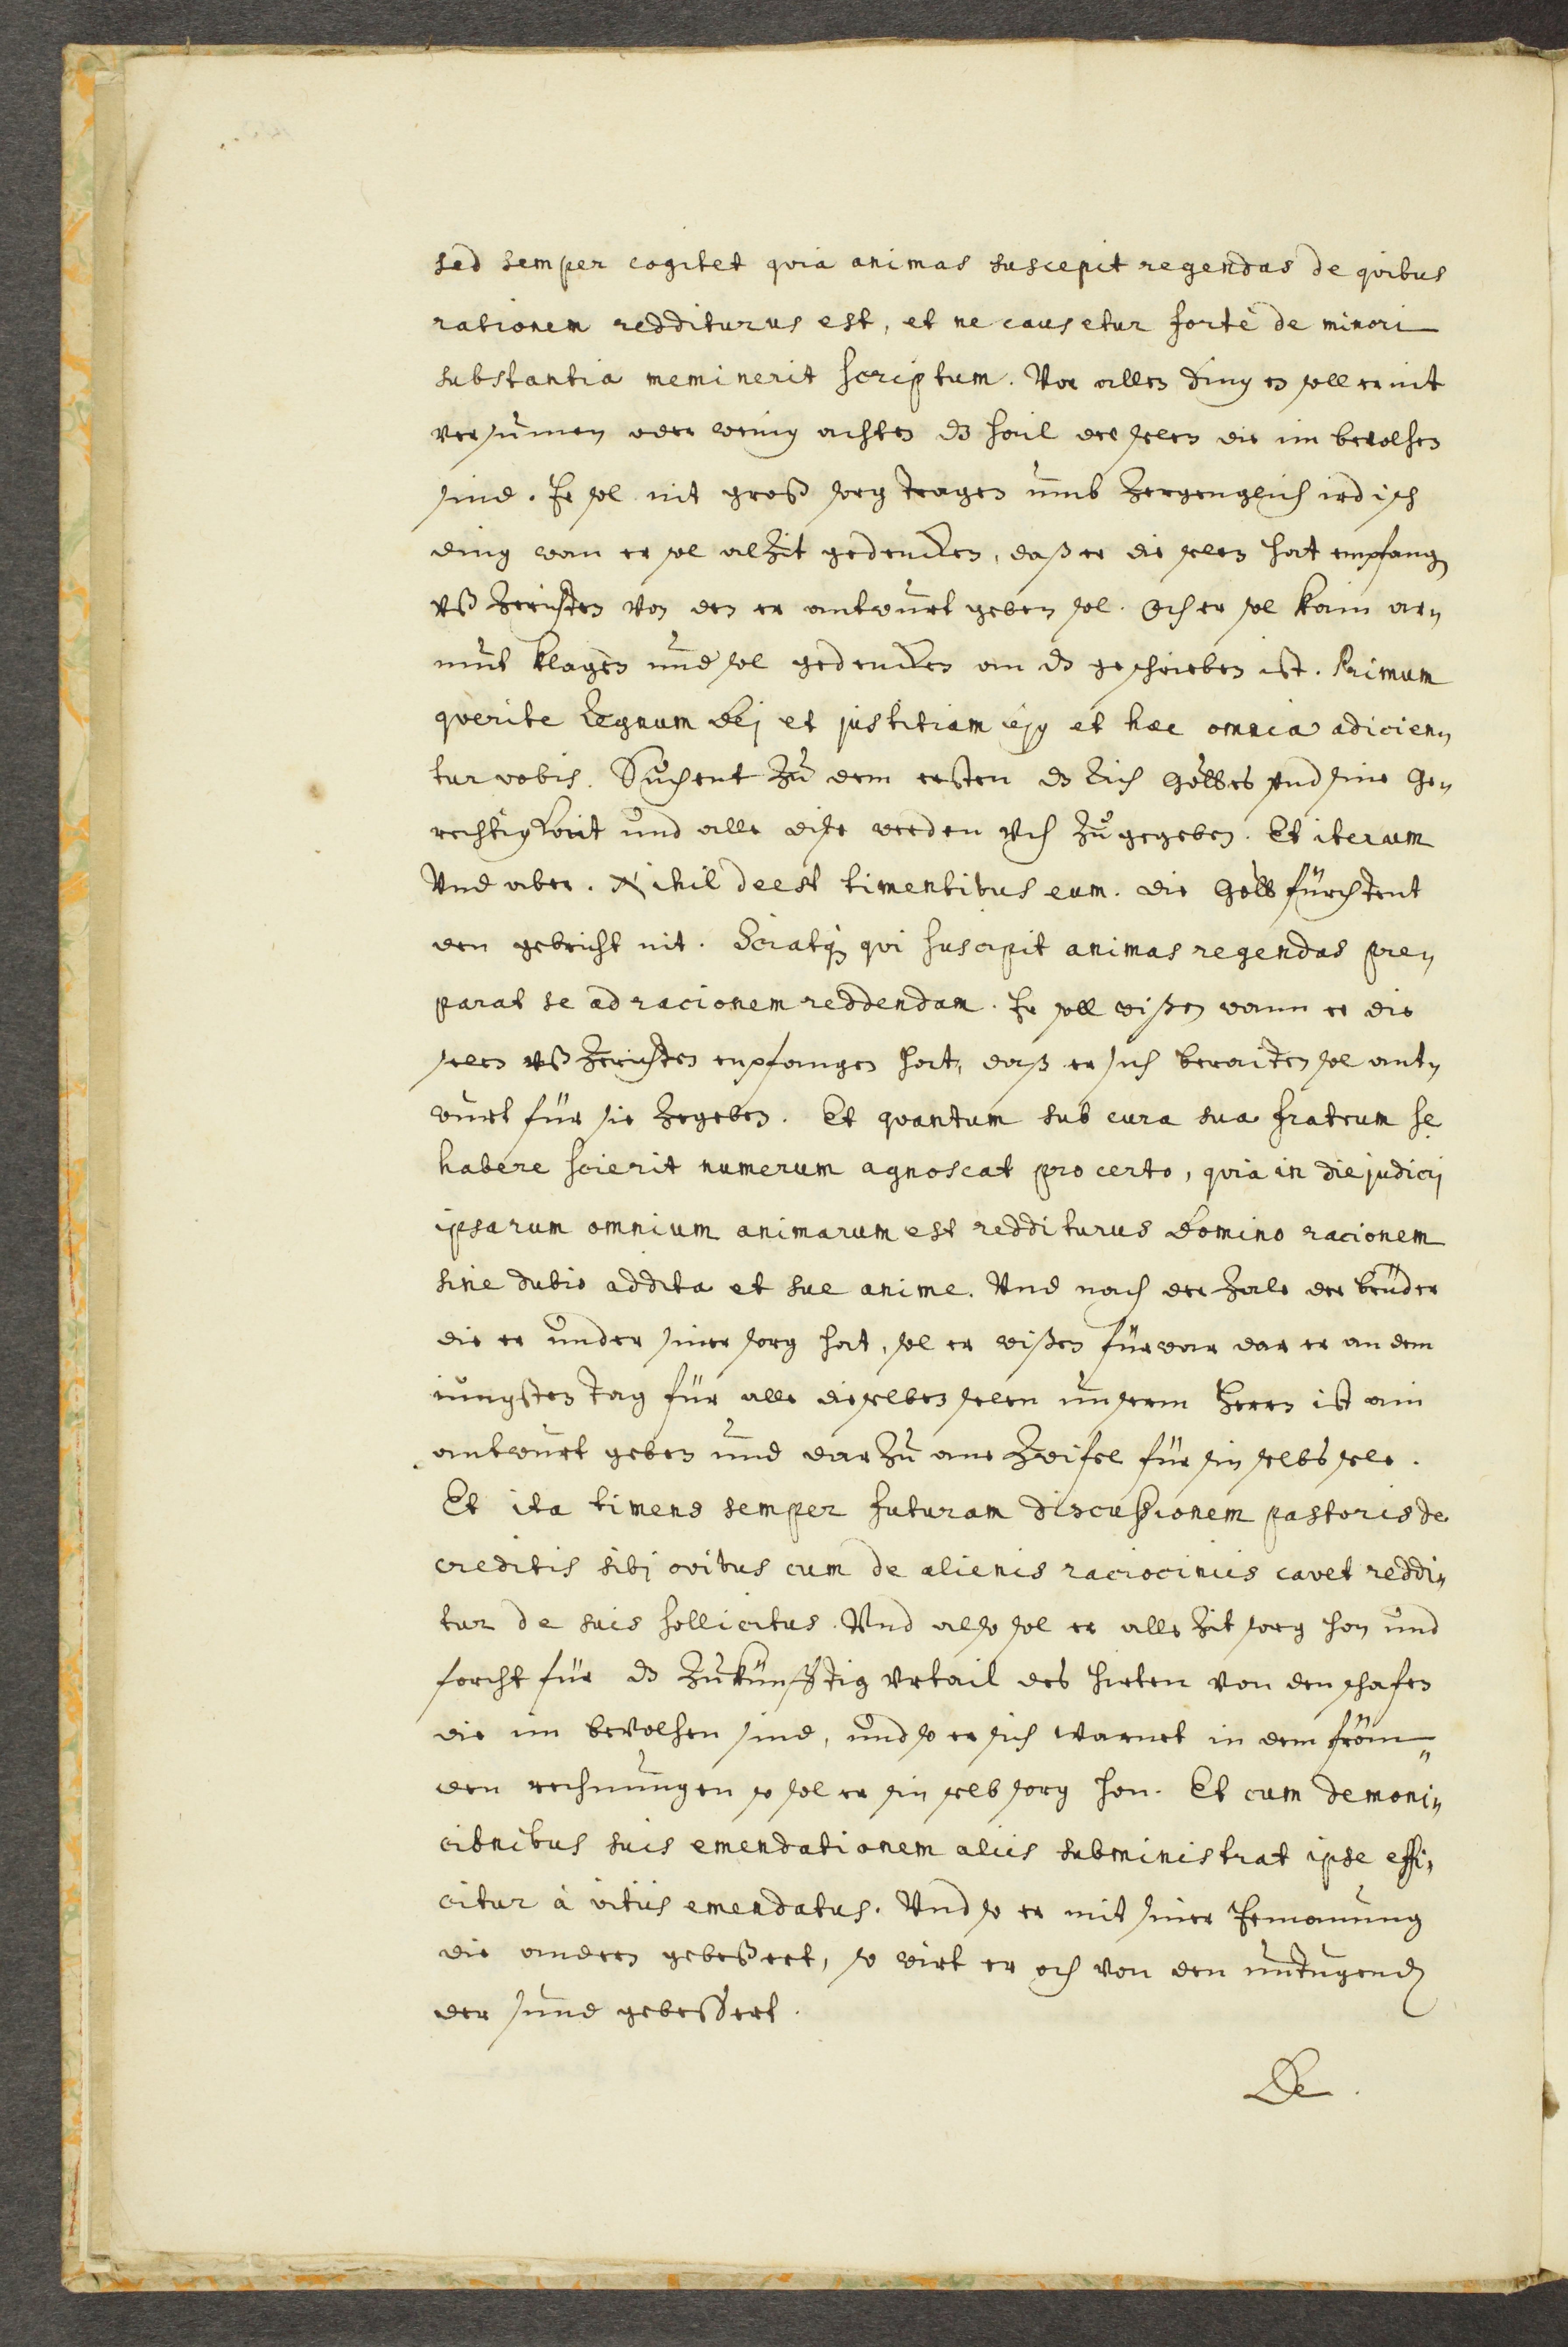 sed semper cogitet qvia animas suscepit regendas de qvibus
rationem redditurus est, et ne causetur forte de minori
substantia meminerit scriptum. Vor allen dingen soll er nit
versumen oder wenig achten dz hail der selen die im bevolhen
sind. Er sol nit groß sorg tragen umb zergenglich irdisch
ding wan er sol alzit gedencken, daß er die selen hat empfangen
uß zerichten von den er antwurt geben sol. Och er sol kain ar„
mut klagen und sol gedencken an dz geschrieben ist. Primum
qverite Regnum Dej et justitiam ejus et hæc omnia adicien„
tur vobis. Suchent zu dem ersten dz Rich Gottes und sine Ge„
rechtigkait und alle dise werden uch zugegeben. Et iterum
Vnd aber. Nihil deest timentibus eum. die Gott fürchtent
den gebricht nit. Sciatq; qvi suscipit animas regendas pre„
parat se ad racionem reddendam. Er soll wißen wann er die
selen uß zerichten enpfangen hat, daß er sich beraiten sol ant„
wurt für sie zegeben. Et qvantum sub cura sua fratrum se
habere scierit numerum agnoscat pro certo, qvia in die judicij
ipsarum omnium animarum est redditurus Domino racionem
sine dubio addita et sue anime. Vnd nach der zale der brüder
die er under siner sorg hat, sol er wißen fürwar dar er an dem
iungsten tag für alle dieselben selen unserm Herrn ist ain
antwurt geben und darzu ane zwifel für sin selbs sele.
Et ita timens semper futuram discussionem pastoris de
creditis sibj ovibus cum de alienis raciociniis cavet reddi„
tur de suis sollicitus. Vnd also sol er alle zit sorg hon und
forcht für dz zukünfftig urtail des hirten von den schafen
die im bevolhen sind, und so er sich warnet in dem fröm„
den rechnungen so sol er sin selb sorg hon. Et cum de moni„
cionibus suis emendationem aliis subministrat ipse effi„
citur à vitiis emendatus. Vnd so er mit siner Ermanung
die andern gebeßert, so wirt er och von den untugenden
der sund gebessert.
De